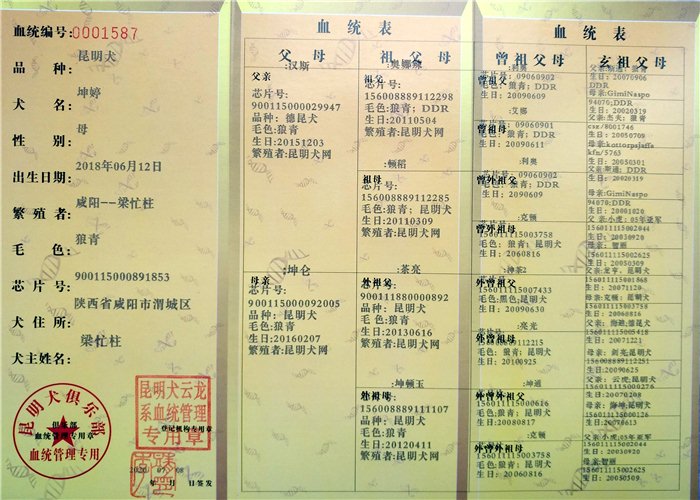 血统编号:0001587
品 种: 昆明犬
犬 名: 坤婷
性 别: 母
出生日期: 2018年06月12日
繁殖者: 咸阳--梁忙柱
毛 色: 狼青
芯片号: 900115000891853
犬住所: 陕西省咸阳市渭城区
犬主姓名: 梁忙柱
昆明犬俱乐部
俱乐部
血统管理专用章
血统管理专用
昆明犬云龙
系血统管理
专用章
登记机构专用章
年 月 日签发
血 统 表
父 母
祖 父 母
父亲:汉斯
芯片号:
900115000029947
品种: 德昆犬
毛色:狼青
生日:20151203
繁殖者:昆明犬网
母亲:坤仑
芯片号:
900115000092005
品种: 昆明犬
毛色:狼青
生日:20160207
繁殖者:昆明犬网
祖父:奥娜
芯片号:
156008889112298
毛色:狼青; DDR
生日:20110504
繁殖者:昆明犬网
祖母:顿稻
芯片号:
156008889112285
毛色:狼青; 昆明犬
生日:20110309
繁殖者:昆明犬网
外祖父:茶亮
芯片号:
900111880000892
毛色:狼青; 昆明犬
生日:20130616
繁殖者:昆明犬网
外祖母:坤顿玉
芯片号:
156008889111107
毛色:狼青; 昆明犬
生日:20120411
繁殖者:昆明犬网
血 统 表
曾祖父母
玄祖父母
曾祖父:利奥
芯片号: 09060902
毛色:狼青; DDR
生日: 20090609
曾祖母:艾娜
芯片号: 09060901
毛色:狼青; DDR
生日: 20090611
曾外祖父:利奥
芯片号: 09060902
毛色:狼青; DDR
曾外祖母:克顿
156011115003758
毛色:狼青; 昆明犬
生日: 20060816
外曾祖父:坤茶2
156011115007433
毛色:黑色; 昆明犬
生日: 20090630
外曾祖母:亮光
毛色:狼青; 昆明犬
外曾外祖父:坤通
156011115000616
毛色:狼青; 昆明犬
生日: 20080817
外曾外祖母:克顿
156011115003758
毛色:狼青; 昆明犬
生日: 20060816
生日: 20070906
母亲:GimiNaspo
94070;DDR
生日: 20020319
父亲:杰夫; 狼青
csz/8001746
生日: 20050709
kfn/5763
生日: 20050301
生日: 20020319
母亲:GimiNaspo
94070;DDR
生日: 20001020
父亲:小虎;05年亚军
156011115002044
生日: 20030920
母亲:智丽
156011115002625
生日: 20050509
156011115001868
生日: 20071120
母亲: 克顿; 昆明犬
156011115003758
生日: 20060816
生日: 20071221
母亲: 剑亮;昆明犬
生日: 20070208
父亲:小虎;05年亚军
156011115002044
生日: 20030920
母亲:智丽
156011115002625
生日: 20050509